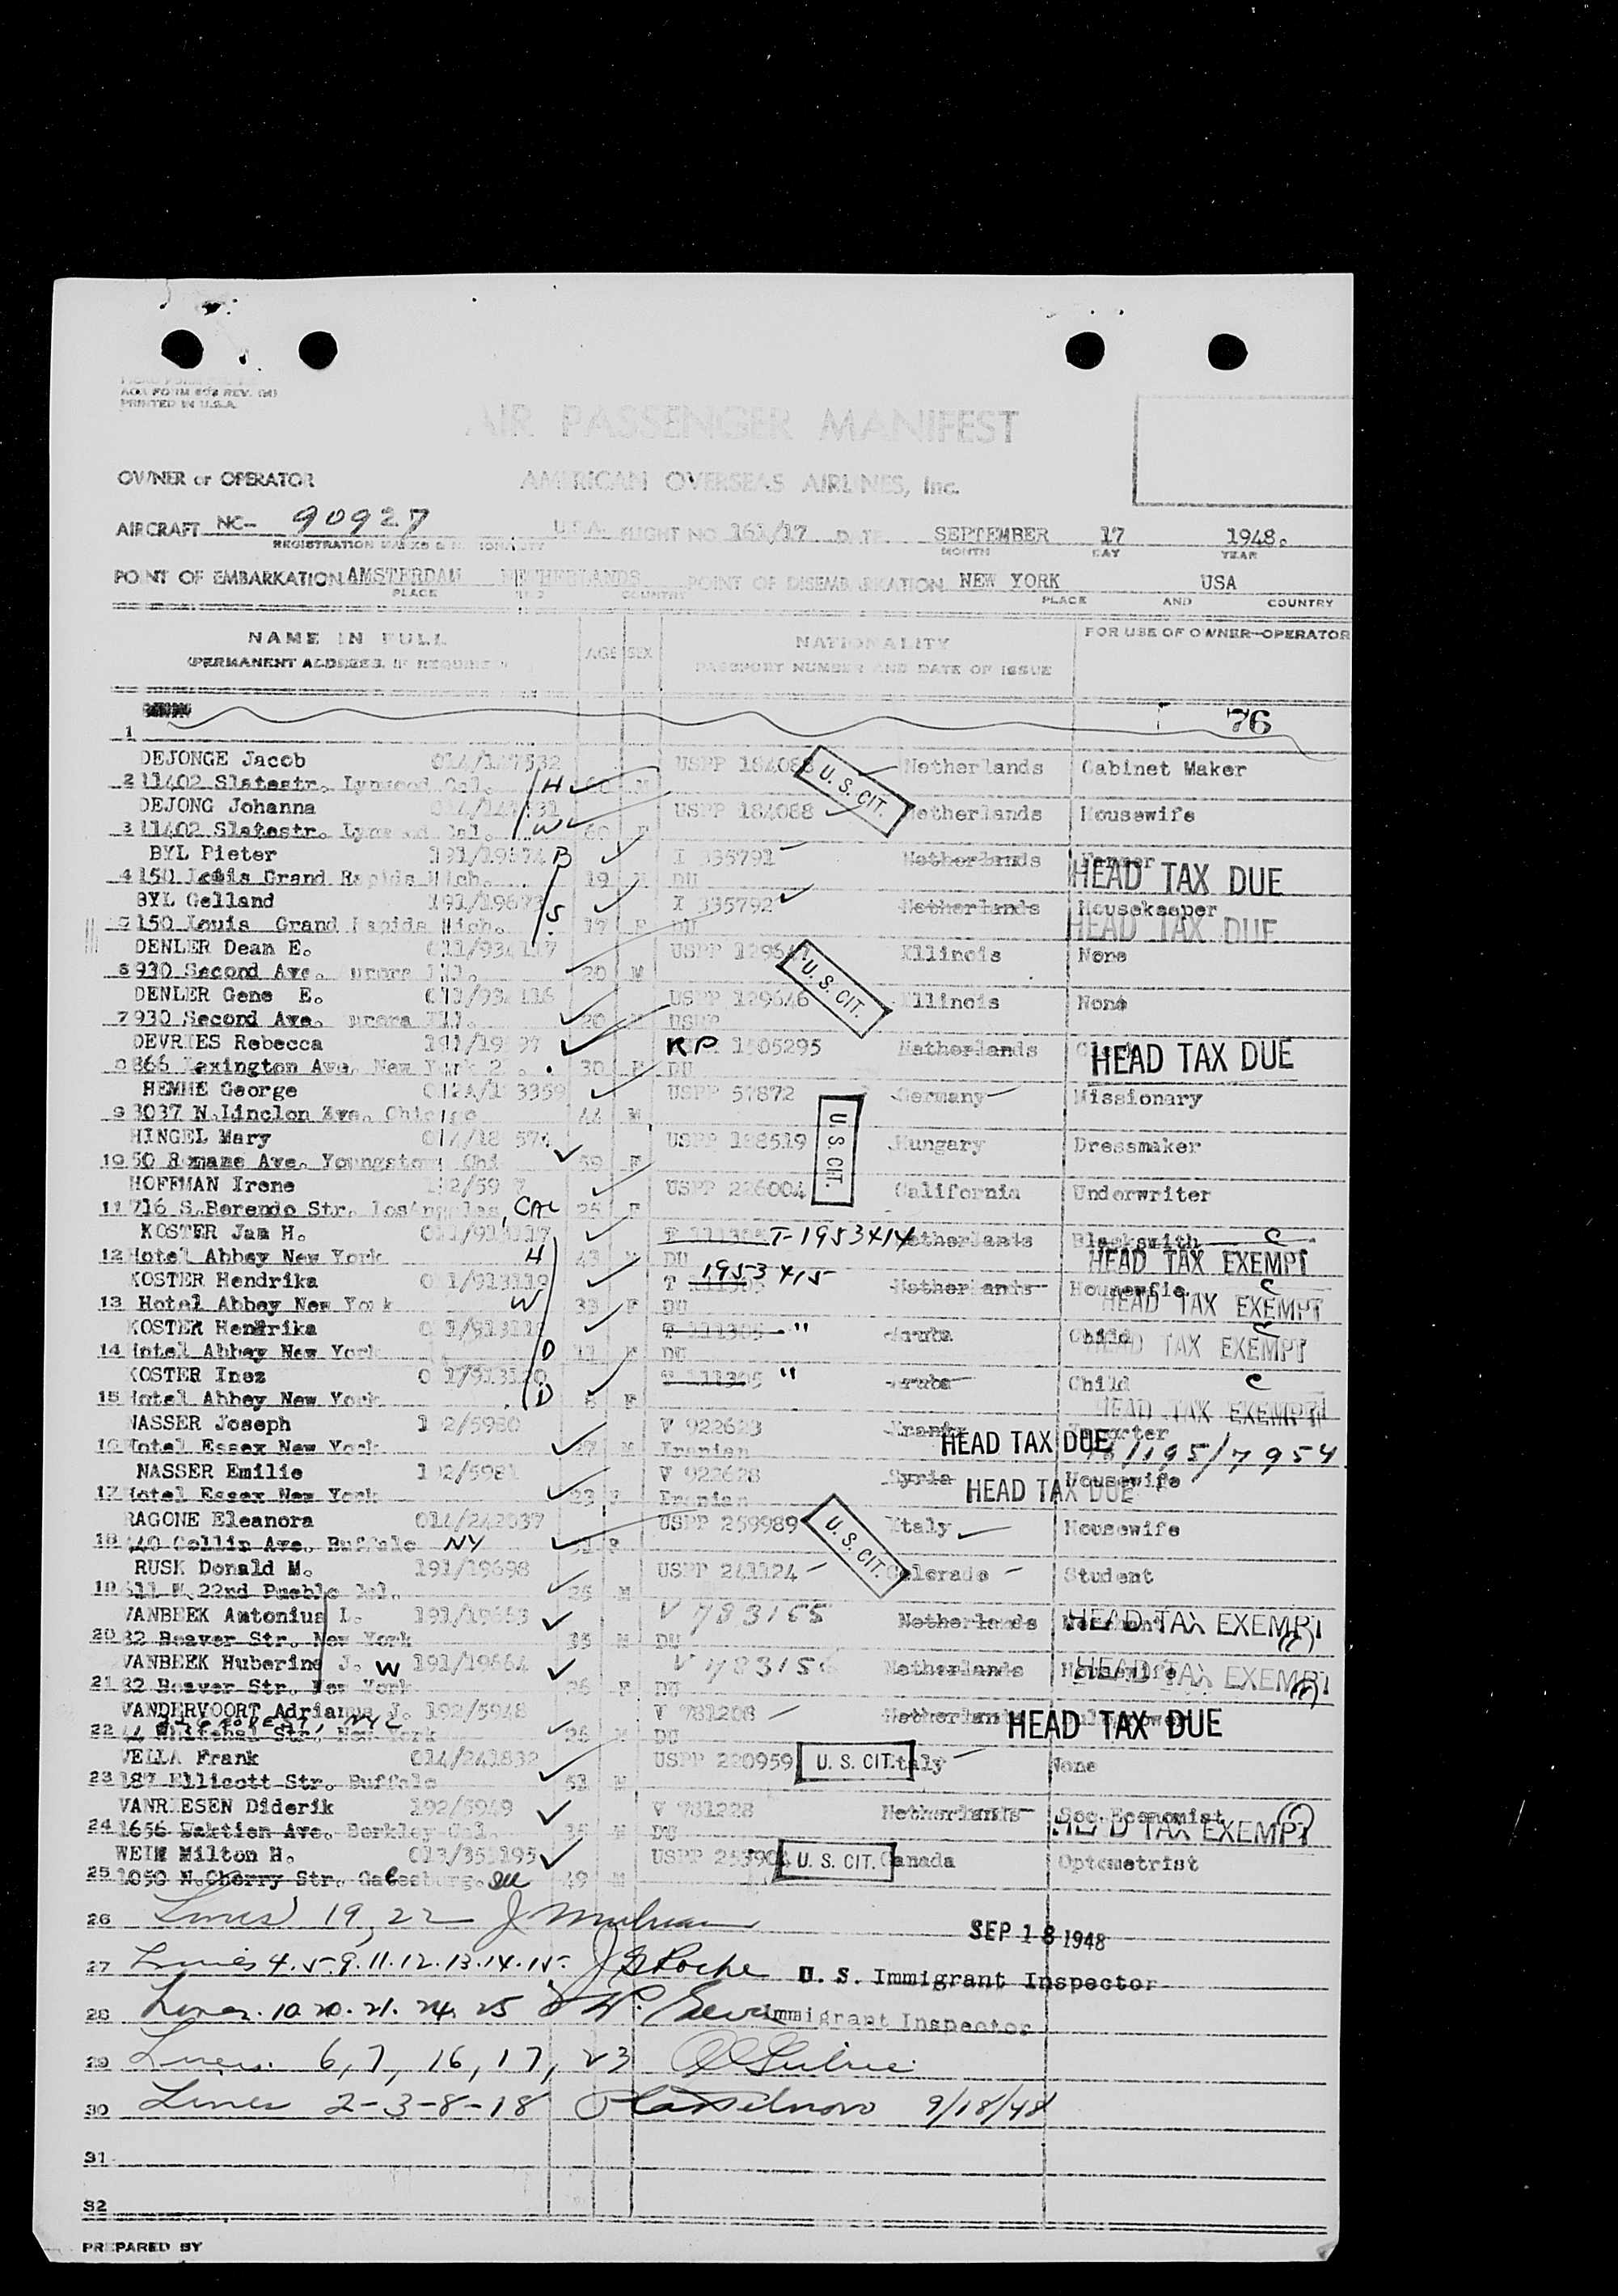 AOA FORM REV.
PRINTED IN U.S.A.
AIR PASSENGER MANIFEST
OWNER or OPERATOR AMERICAN OVERSEAS AIRLINES, Inc.
AIRCRAFT NC- 90927 U.S.A. FLIGHT NO 161/17 DATE SEPTEMBER 17 1948.
REGISTRATION MARKS & NATIONALITY MONTH DAY YEAR
POINT OF EMBARKATION AMSTERDAM NETHERLANDS POINT OF DISEMBARKATION NEW YORK USA
PLACE AND COUNTRY PLACE AND COUNTRY
NAME IN FULL AGE SEX NATIONALITY FOR USE OF OWNER-OPERATOR
(PERMANENT ADDRESS, IF REQUIRED) PASSPORT NUMBER AND DATE OF ISSUE
1 76
DEJONGE Jacob USPP 184088 Netherlands Cabinet Maker
2 11402 Slatestr. Lynwood Cal. H 60 M U. S. CIT.
DEJONG Johanna USPP 184088 Netherlands Housewife
3 11402 Slatestr. Lynwood Cal. W 60 F
BYL Pieter 191/19674 B I 335791 Netherlands Farmer
4 150 Louis Grand Rapids Mich. 19 M DU HEAD TAX DUE
BYL Gelland 191/19673 S I 335792 Netherlands Housekeeper
5 150 Louis Grand Rapids Mich. 17 F DU HEAD TAX DUE
DENLER Dean E. 011/934117 USPP 129647 Illinois None
6 930 Second Ave. Aurora Ill. 20 M U. S. CIT.
DENLER Gene E. 011/934116 USPP 129646 Illinois None
7 930 Second Ave. Aurora Ill. 20 M USPP
DEVRIES Rebecca KP 1505295 Netherlands Clerk
8 866 Lexington Ave. New York 30 F DU HEAD TAX DUE
HEMME George USPP 57872 Germany Missionary
9 3037 N.Linclon Ave. Chicago 44 M U. S. CIT.
HINGEL Mary USPP 188519 Hungary Dressmaker
10 50 Romame Ave. Youngstown Ohi 59 F
HOFFMAN Irene USPP 226004 California Underwriter
11 716 S.Berendo Str. Los Angeles, CAL 25 F
KOSTER Jam H. T-1953414 Netherlands Blacksmith C
12 Hotel Abbey New York H 43 M DU HEAD TAX EXEMPT
KOSTER Hendrika 011/913119 T 1953415 Netherlands Housewfie C
13 Hotel Abbey New York W 33 F DU HEAD TAX EXEMPT
KOSTER Hendrika T 111305 " Aruba Child C
14 Hotel Abbey New York D 11 F DU HEAD TAX EXEMPT
KOSTER Inez T 111305 " Aruba Child C
15 Hotel Abbey New York D 8 F HEAD TAX EXEMPT
NASSER Joseph 192/5980 V 922623 Importer
16 Hotel Essex New York 27 M Iranian HEAD TAX DUE
NASSER Emilie 192/5981 V 922628 Syria Housewife
17 Hotel Essex New York 23 F Iranian HEAD TAX DUE
RAGONE Eleanora 014/242037 USPP 259989 Italy Housewife
18 440 Collin Ave. Buffalo NY 31 F U. S. CIT.
RUSK Donald M. 191/19698 USPP 241124 Colorado Student
19 411 W.22nd Pueblo Col. 25 M
VANBEEK Antonius L. 191/19663 V 783155 Netherlands Merchant
20 82 Beaver Str. New York 35 M DU HEAD TAX EXEMPT (C)
VANBEEK Huberina J. W 191/19664 V 783156 Netherlands Housewife
21 82 Beaver Str. New York 26 F DU HEAD TAX EXEMPT
VANDERVOORT Adrianus J. 192/5948 V 781208 Netherlands
22 44 Whitehal Str. New York NYC 26 M DU HEAD TAX DUE
VELLA Frank 014/241832 USPP 220959 U. S. CIT. Italy None
23 187 Ellicott Str. Buffalo 51 M
VANRIESEN Diderik 192/5949 V 781228 Netherlands Soc. Economist
24 1656 Waktien Ave. Berkley Cal. 35 M DU HEAD TAX EXEMPT (C)
WEIN Milton H. USPP 253904 U. S. CIT. Canada Optometrist
25 1050 N.Cherry Str. Galesburg. Ill 49 M
26 Lines 19, 22 SEP 18 1948
27 Lines 4.5.9.11.12.13.14.15. J G Roche U. S. Immigrant Inspector
28 Lines. 10 20. 21. 24. 25 Immigrant Inspector
29 Lines. 6, 7, 16, 17, 23
30 Lines 2-3-8-18 9/18/48
31
32
PREPARED BY